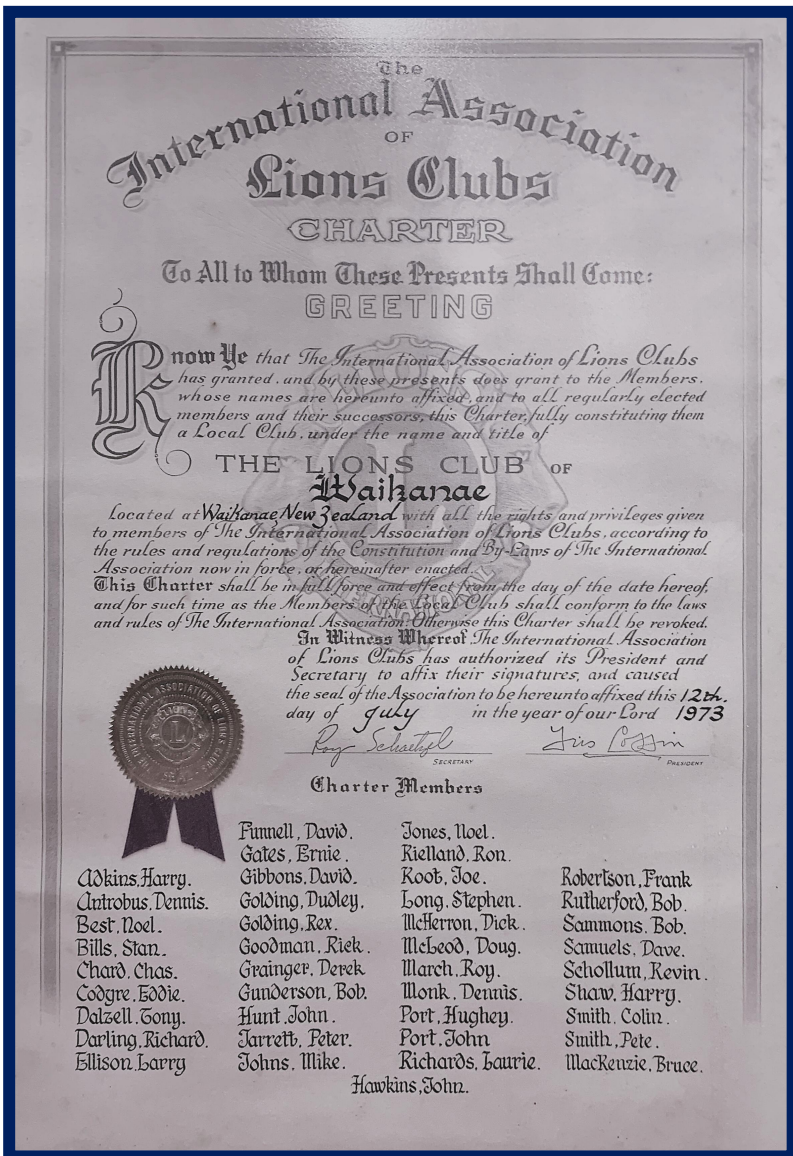 The
International Association
OF
Lions Clubs
CHARTER
To All to Whom These Presents Shall Come:
GREETING
Know Ye that The International Association of Lions Clubs
has granted, and by these presents does grant to the Members,
whose names are hereunto affixed, and to all regularly elected
members and their successors, this Charter, fully constituting them
a Local Club, under the name and title of
THE LIONS CLUB OF
Waikanae
Located at Waikanae, New Zealand with all the rights and privileges given
to members of The International Association of Lions Clubs, according to
the rules and regulations of the Constitution and By-Laws of The International
Association now in force, or hereinafter enacted.
This Charter shall be in full force and effect from the day of the date hereof,
and for such time as the Members of the Local Club shall conform to the laws
and rules of The International Association. Otherwise this Charter shall be revoked.
In Witness Whereof The International Association
of Lions Clubs has authorized its President and
Secretary to affix their signatures, and caused
the seal of the Association to be hereunto affixed this 12th.
day of July in the year of our Lord 1973
Roy Schaetzel
SECRETARY
Tris Coffin
PRESIDENT
THE INTERNATIONAL ASSOCIATION OF LIONS CLUBS
LIONS
L
SEAL
Charter Members
Adkins, Harry.
Antrobus, Dennis.
Best, Noel.
Bills, Stan.
Chard, Chas.
Codyre, Eddie.
Dalzell, Tony.
Darling, Richard.
Ellison, Larry
Funnell, David.
Gates, Ernie.
Gibbons, David.
Golding, Dudley.
Golding, Rex.
Goodman, Rick.
Grainger, Derek
Gunderson, Bob.
Hunt, John.
Jarrett, Peter.
Johns, Mike.
Jones, Noel.
Rielland, Ron.
Koot, Joe.
Long, Stephen.
McHerron, Dick.
McLeod, Doug.
March, Roy.
Monk, Dennis.
Port, Hughey.
Port, John
Richards, Laurie.
Robertson, Frank
Rutherford, Bob.
Sammons, Bob.
Samuels, Dave.
Schollum, Kevin.
Shaw, Harry.
Smith, Colin.
Smith, Pete.
MacKenzie, Bruce.
Hawkins, John.